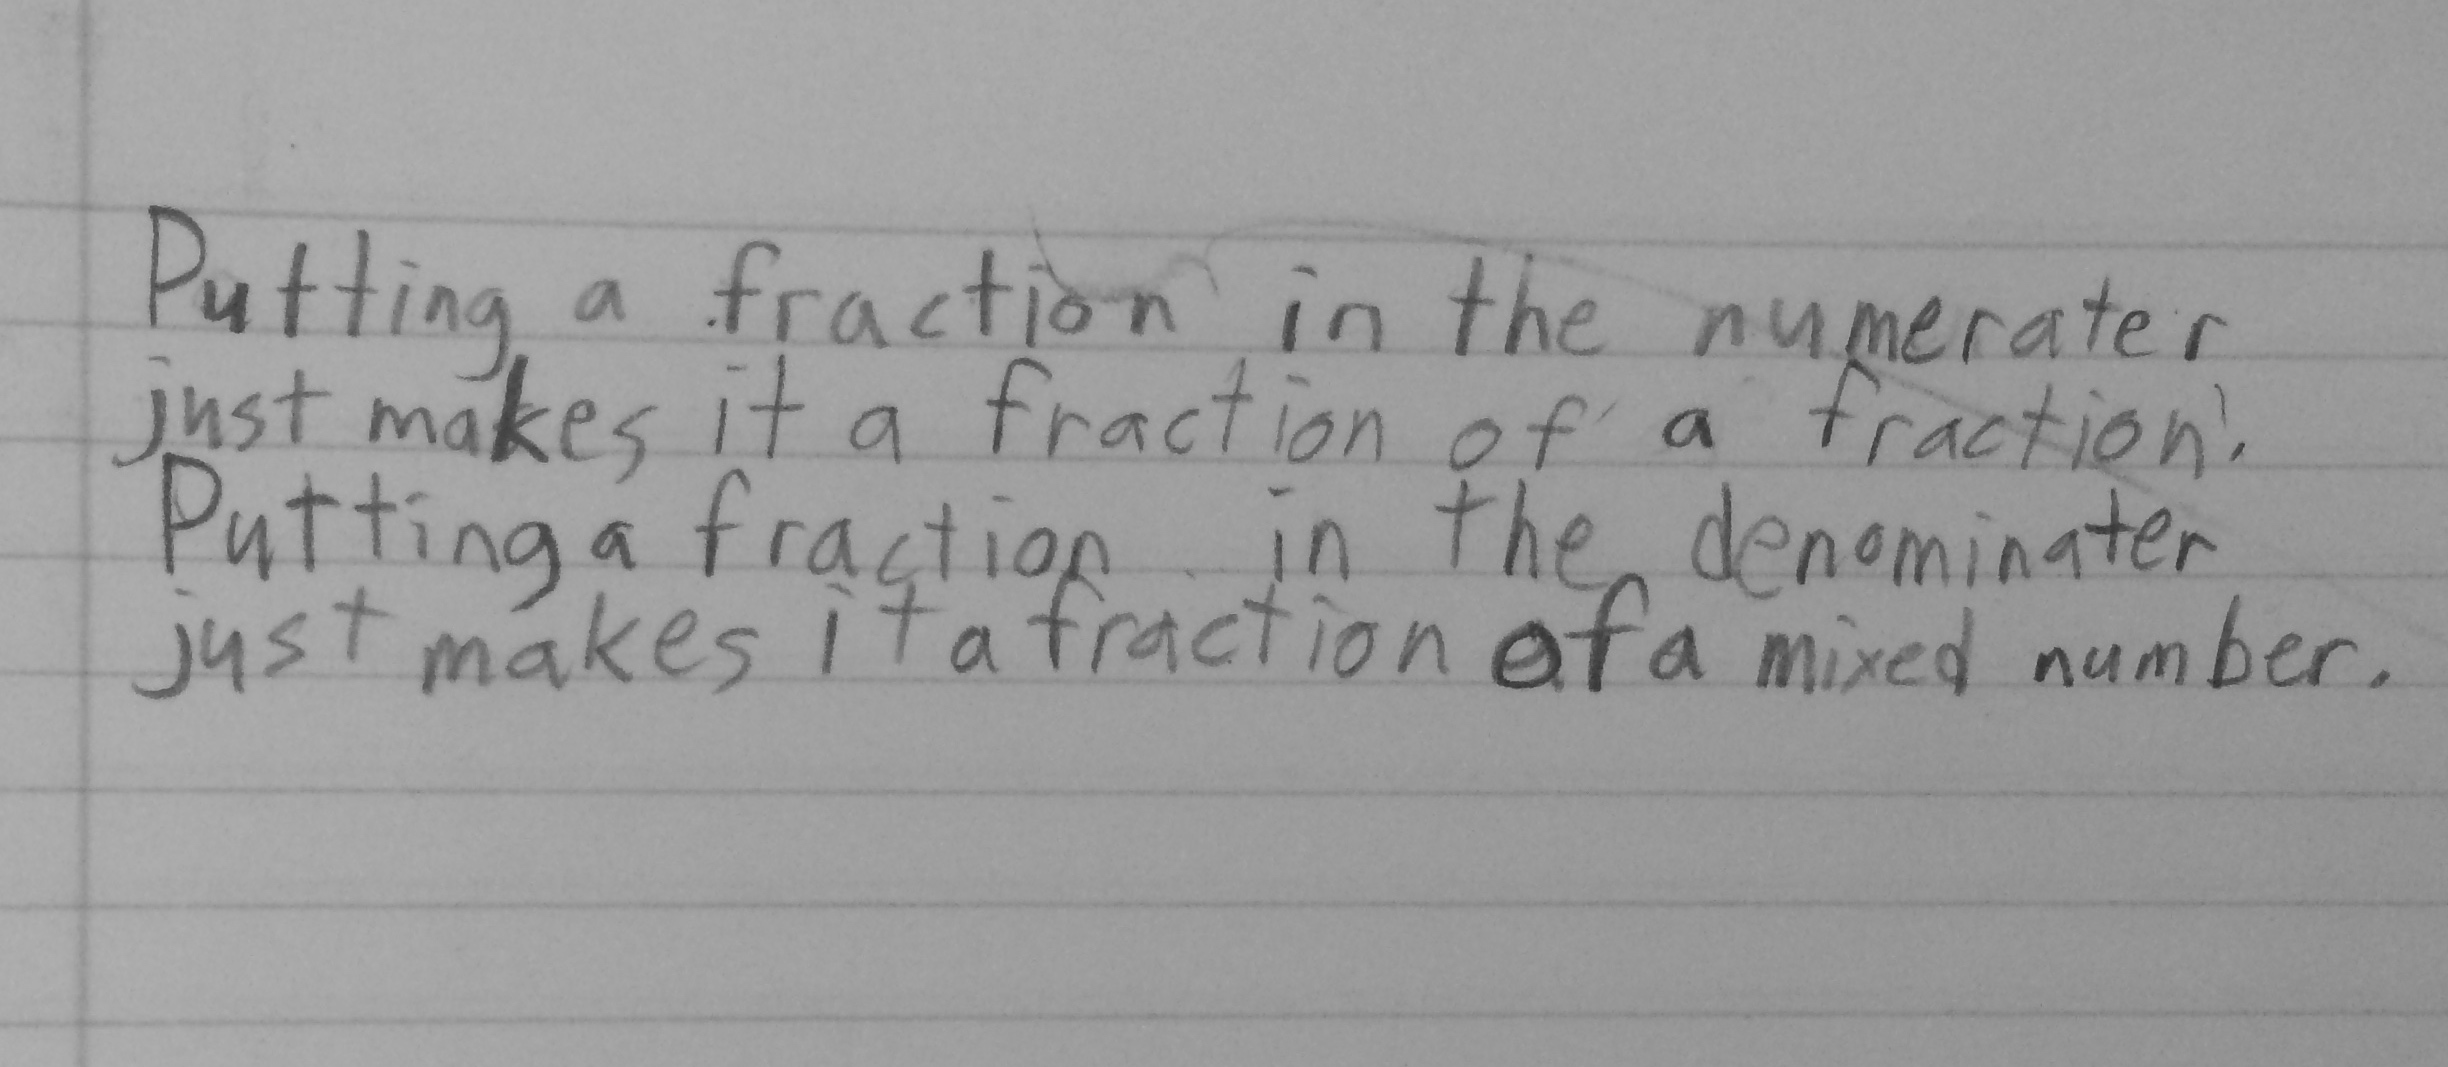 Putting a fraction in the numerater
just makes it a fraction of a fraction.
Putting a fraction in the denominater
just makes it a fraction of a mixed number.